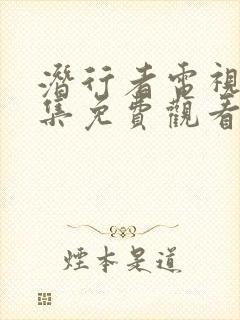 潛行者電視
集免費觀看
煙本是道